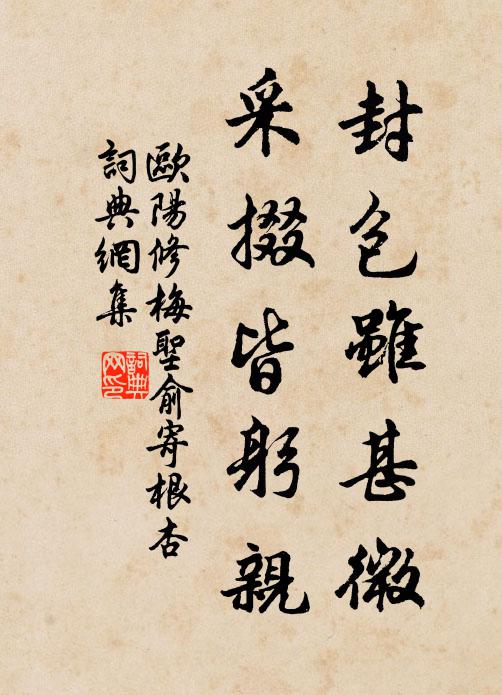 封包雖甚微
采掇皆躬親
歐陽修梅聖俞寄根杏
詞典網集
詞典网印